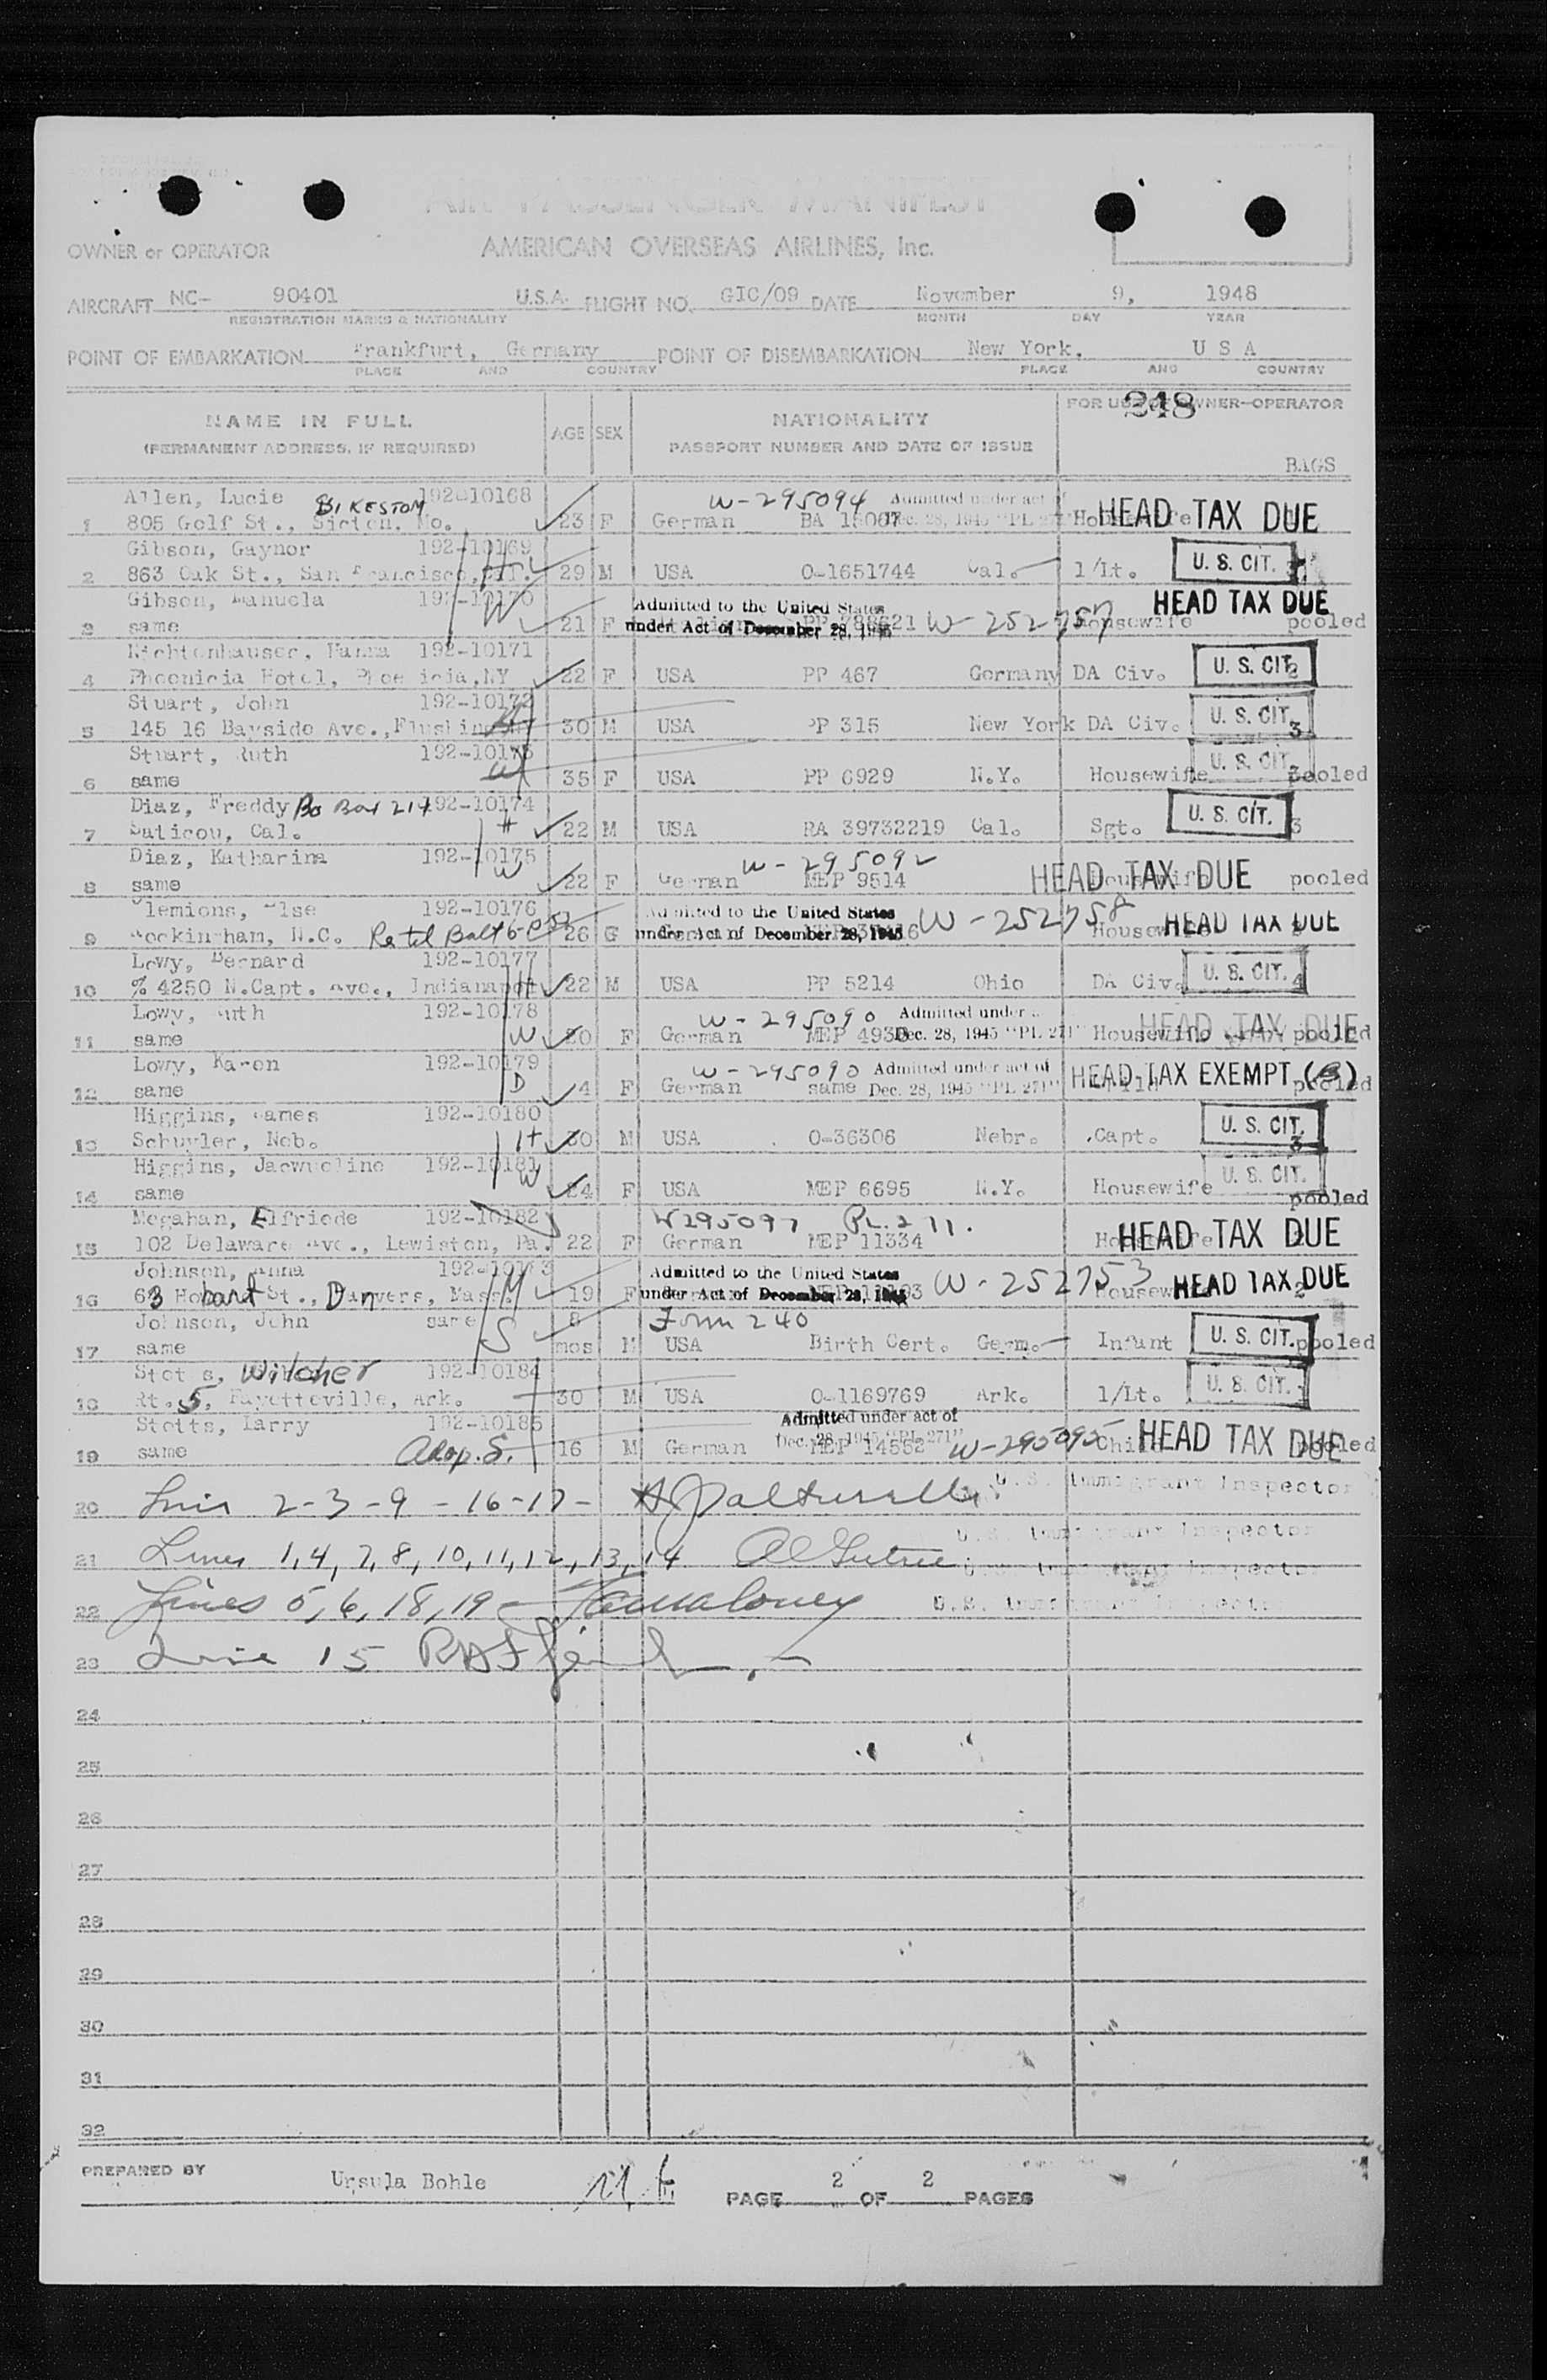 AIR PASSENGER MANIFEST
OWNER or OPERATOR AMERICAN OVERSEAS AIRLINES, Inc.
AIRCRAFT NC- 90401 U.S.A. FLIGHT NO. GIC/09 DATE November 9, 1948
REGISTRATION MARKS & NATIONALITY MONTH DAY YEAR
POINT OF EMBARKATION Frankfurt, Germany POINT OF DISEMBARKATION New York, U S A
PLACE AND COUNTRY PLACE AND COUNTRY
248
NAME IN FULL AGE SEX NATIONALITY FOR USE OF OWNER-OPERATOR
(PERMANENT ADDRESS, IF REQUIRED) PASSPORT NUMBER AND DATE OF ISSUE
BAGS
Allen, Lucie 192-10168 W-295094 Admitted under act of
1 805 Golf St., Mo. 23 F German BA 15067 Dec. 28, 1945 "PL 271" HEAD TAX DUE
Gibson, Gaynor 192-10169 H
2 863 Oak St., San Francisco, 29 M USA O-1651744 Cal. 1/Lt. U. S. CIT.
Gibson, Manuela 192-10170 W Admitted to the United States HEAD TAX DUE
3 same 21 F under Act of December 28, 1945 W-252757 Housewife pooled
Hanna 192-10171
4 Phoenicia Hotel, Phoenicia, NY 22 F USA PP 467 Germany DA Civ. U. S. CIT. 2
Stuart, John 192-10172 H
5 145 16 Bayside Ave., Flushing 30 M USA PP 315 New York DA Civ. U. S. CIT. 3
Stuart, Ruth 192-10173 W
6 same 35 F USA PP 6929 N.Y. Housewife U. S. CIT. pooled
Diaz, Freddy Bo Box 214 192-10174 H
7 Saticou, Cal. 22 M USA RA 39732219 Cal. Sgt. U. S. CIT. 3
Diaz, Katharina 192-10175 W W-295092
8 same 22 F German MEP 9514 Housewife HEAD TAX DUE pooled
Clemions, Else 192-10176 Admitted to the United States W-252758
9 Rockingham, N.C. 26 G under Act of December 28, 1945 Housewife HEAD TAX DUE
Lowy, Bernard 192-10177
10 % 4250 N.Capt. Ave., H 22 M USA PP 5214 Ohio DA Civ. U. S. CIT. 4
Lowy, Ruth 192-10178 W-295090 Admitted under
11 same W 20 F German MEP Dec. 28, 1945 "PL 271" Housewife HEAD TAX DUE pooled
Lowy, Karen 192-10179 W-295090 Admitted under act of
12 same D 4 F German same Dec. 28, 1945 "PL 271" HEAD TAX EXEMPT pooled
Higgins, James 192-10180
13 Schuyler, Neb. H 30 M USA O-36306 Nebr. Capt. U. S. CIT. 3
Higgins, Jacwueline 192-10181 W
14 same 24 F USA MEP 6695 N.Y. Housewife U. S. CIT. pooled
Megahan, Elfriede 192-10182 W295097 PL. 271.
15 102 Delaware Ave., Lewiston, Pa. 22 F German MEP 11334 HEAD TAX DUE
Johnson, Anna Admitted to the United States W-252753
16 63 Hobart St., Danvers, Mass. M 19 F under Act of December 28, 1945 Housewife HEAD TAX DUE 2
Johnson, John same S 8 Form 240
17 same mos M USA Birth Cert. Germ. Infant U. S. CIT. pooled
Stotts, Wilcher 192-10184
18 Rt. 5, Fayetteville, Ark. 30 M USA O-1169769 Ark. 1/Lt. U. S. CIT.
Stotts, Larry 192-10185 Admitted under act of
19 same Adop. S. 16 M German Dec. 28, 1945 "PL 271" MEP 14552 W-295095 Child HEAD TAX DUE pooled
20 2-3-9-16-17- U.S. Immigrant Inspector
21 Lines 1,4,7,8,10,11,12,13,14 U.S. Immigrant Inspector
22 Lines 5,6,18,19 U.S. Immigrant Inspector
23 Line 15
24
25
26
27
28
29
30
31
32
PREPARED BY Ursula Bohle PAGE 2 OF 2 PAGES